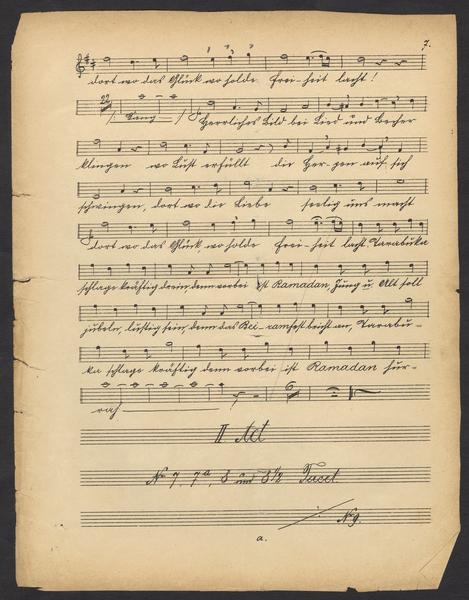 7.
dort wo das Glück, wo holde Frei-heit lacht!
22 /: Tanz :/ Herrliches Bild bei Lied und Becher
klingen wo Lust erfüllt die Her-zen auf sich
schwingen, dort wo die Liebe seelig uns macht
dort wo das Glück, wo holde Frei-heit lacht. Tarabuka
schlage kräftig drein denn vorbei ist Ramadan, Jung u. Alt soll
jubeln, lustig sein, denn das Bei-ramfest bricht an, Tarabu-
ka schlage kräftig denn vorbei ist Ramadan hur-
rah 6
II Act
No 7, 7a, 8 und 8 1/2 Tacet.
No 9.
a.